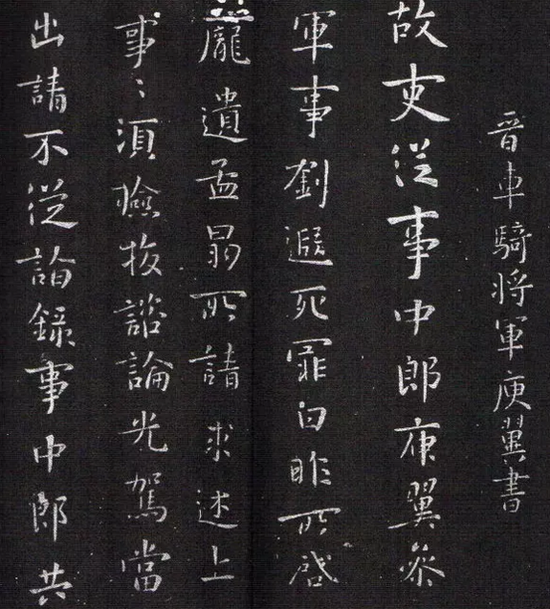 晉車騎將軍庾翼書
故吏從事中郎庾翼參
軍事劉遐死罪白昨所啓
龐遺孟所請求述上
事〻須檢校諮論光駕當
出請不從論錄事中郎共